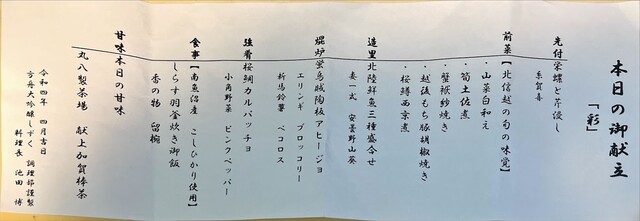 本日の御献立
「彩」
先付 栄螺と芹浸し
糸賀喜
前菜【北信越の旬の味覚】
・山菜白和え
・筍土佐煮
・蟹袱紗焼き
・越後もち豚胡椒焼き
・桜鱒西京煮
造里 北陸鮮魚三種盛合せ
妻一式 安曇野山葵
焜炉 蛍烏賊陶板アヒージョ
エリンギ ブロッコリー
新馬鈴薯 ペコロス
強肴 桜鯛カルパッチョ
小角野菜 ピンクペッパー
食事【南魚沼産 こしひかり使用】
しらす羽釜炊き御飯
香の物 留椀
甘味 本日の甘味
丸八製茶場 献上加賀棒茶
令和四年 四月吉日
方舟大吟醸しずく 調理部謹製
料理長 池田 博